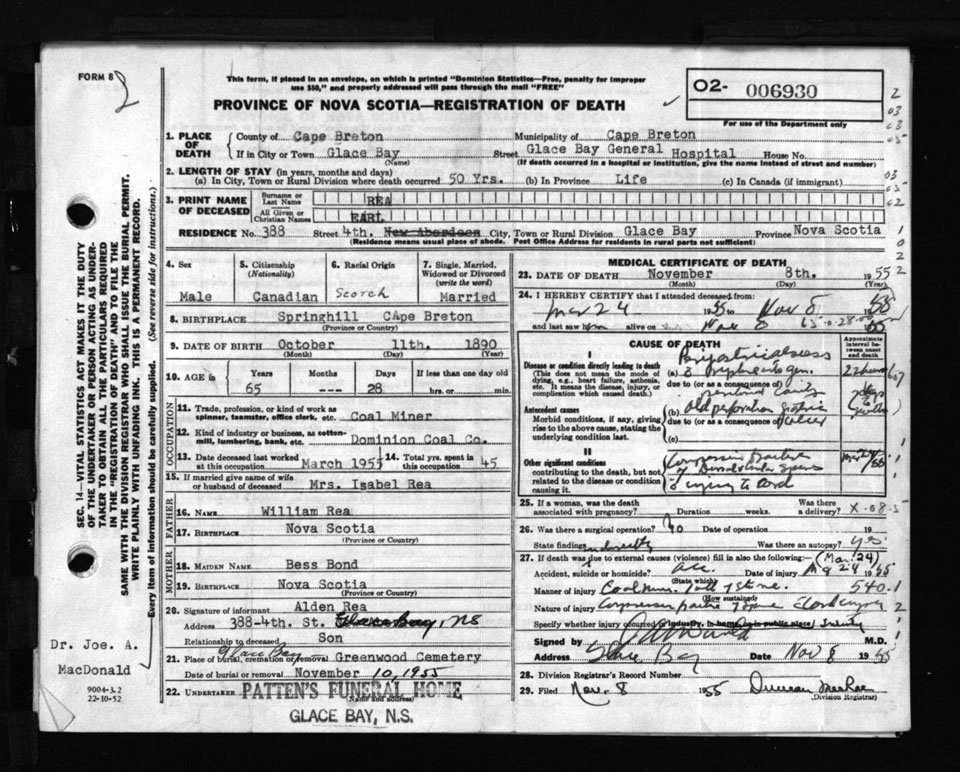 FORM 8
2
This form, if placed in an envelope, on which is printed "Dominion Statistics—Free, penalty for improper
use $50," and properly addressed will pass through the mail "FREE"
PROVINCE OF NOVA SCOTIA—REGISTRATION OF DEATH
02- 006930
For use of the Department only
SEC. 14—VITAL STATISTICS ACT MAKES IT THE DUTY
OF THE UNDERTAKER OR PERSON ACTING AS UNDER-
TAKER TO OBTAIN ALL THE PARTICULARS REQUIRED
IN THE "REGISTRATION OF DEATH" AND TO FILE THE
SAME WITH THE DIVISION REGISTRAR WHO SHALL ISSUE THE BURIAL PERMIT.
WRITE PLAINLY WITH UNFADING INK. THIS IS A PERMANENT RECORD.
Every item of information should be carefully supplied. (See reverse side for instructions.)
1. PLACE OF DEATH
County of Cape Breton Municipality of Cape Breton
If in City or Town Glace Bay Street Glace Bay General Hospital House No.
(Name) (If death occurred in a hospital or institution, give the name instead of street and number)
2. LENGTH OF STAY (in years, months and days)
(a) In City, Town or Rural Division where death occurred 50 Yrs. (b) In Province Life (c) In Canada (if immigrant)
3. PRINT NAME OF DECEASED
Surname or Last Name REA
All Given or Christian Names EARL
RESIDENCE No. 388 Street 4th. New Aberdeen City, Town or Rural Division Glace Bay Province Nova Scotia
(Residence means usual place of abode. Post Office Address for residents in rural parts not sufficient)
4. Sex
Male
5. Citizenship (Nationality)
Canadian
6. Racial Origin
Scotch
7. Single, Married, Widowed or Divorced (write the word)
Married
8. BIRTHPLACE Springhill CApe Breton
(Province or Country)
9. DATE OF BIRTH October 11th. 1890
(Month) (Day) (Year)
10. AGE is
Years Months Days If less than one day
65 --- 28 hrs. or min.
OCCUPATION
11. Trade, profession, or kind of work as spinner, teamster, office clerk, etc. Coal Miner
12. Kind of industry or business, as cotton-mill, lumbering, bank, etc. Dominion Coal Co.
13. Date deceased last worked at this occupation March 1955 14. Total yrs. spent in this occupation 45
15. If married give name of wife or husband of deceased Mrs. Isabel Rea
FATHER
16. NAME William Rea
17. BIRTHPLACE Nova Scotia
(Province or Country)
MOTHER
18. MAIDEN NAME Bess Bond
19. BIRTHPLACE Nova Scotia
(Province or Country)
20. Signature of informant Alden Rea
Address 388-4th. St. Glace Bay, NS
Relationship to deceased Son
21. Place of burial, cremation or removal Glace Bay Greenwood Cemetery
Date of burial or removal November 10, 1955
22. UNDERTAKER PATTEN'S FUNERAL HOME
(Name and address)
GLACE BAY, N.S.
Dr. Joe. A.
MacDonald
9004-3.2
22-10-52
MEDICAL CERTIFICATE OF DEATH
23. DATE OF DEATH November 8th. 1955
(Month) (Day) (Year)
24. I HEREBY CERTIFY that I attended deceased from:
Mar 24 1955 to Nov 8 1955
and last saw him alive on Nov 8 1955
CAUSE OF DEATH
Approximate interval between onset and death
I
Disease or condition directly leading to death
(This does not mean the mode of dying, e.g., heart failure, asthenia, etc. It means the disease, injury, or complication which caused death.)
(a)
due to (or as a consequence of)
Antecedent causes
Morbid conditions, if any, giving rise to the above cause, stating the underlying condition last.
(b) old perforation gastric ulcer
due to (or as a consequence of)
(c)
II
Other significant conditions
contributing to the death, but not related to the disease or condition causing it.
Compression fracture
of Dorsal lumbar Spine
& injury to Cord
25. If a woman, was the death associated with pregnancy? Duration weeks. Was there a delivery?
26. Was there a surgical operation? No Date of operation 19
State findings Was there an autopsy? yes
27. If death was due to external causes (violence) fill in also the following:— (Mar. 24)
Accident, suicide or homicide? acc Date of injury 24 1955
(State which)
Manner of injury Coal mine. Fall of stone.
(How sustained)
Nature of injury Compression fracture of spine & cord injury
Specify whether injury occurred in industry, in home or in public place Industry
Signed by M.D.
Address Glace Bay Date Nov 8 1955
28. Division Registrar's Record Number
29. Filed Nov. 8 1955 Duncan MacRae
(Division Registrar)